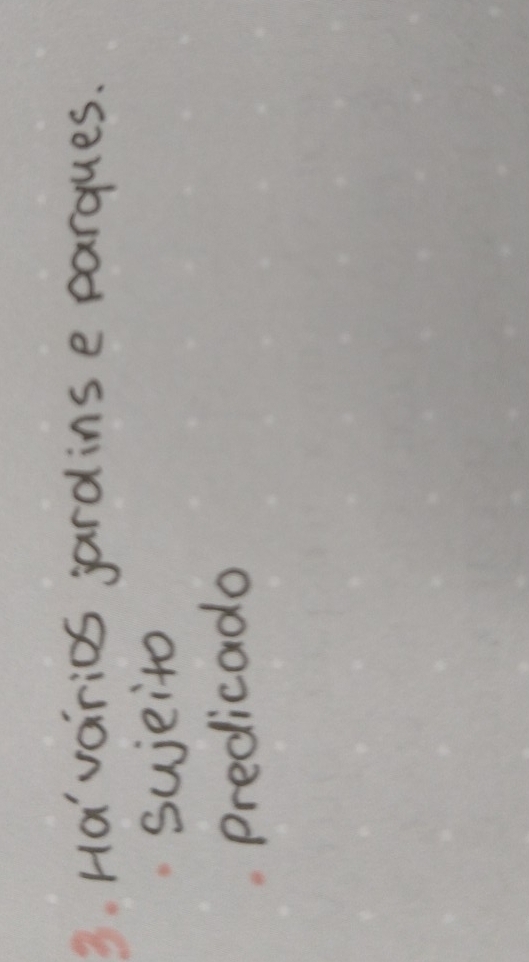 3. Há vários jardins e parques.
• Sujeito
• Predicado